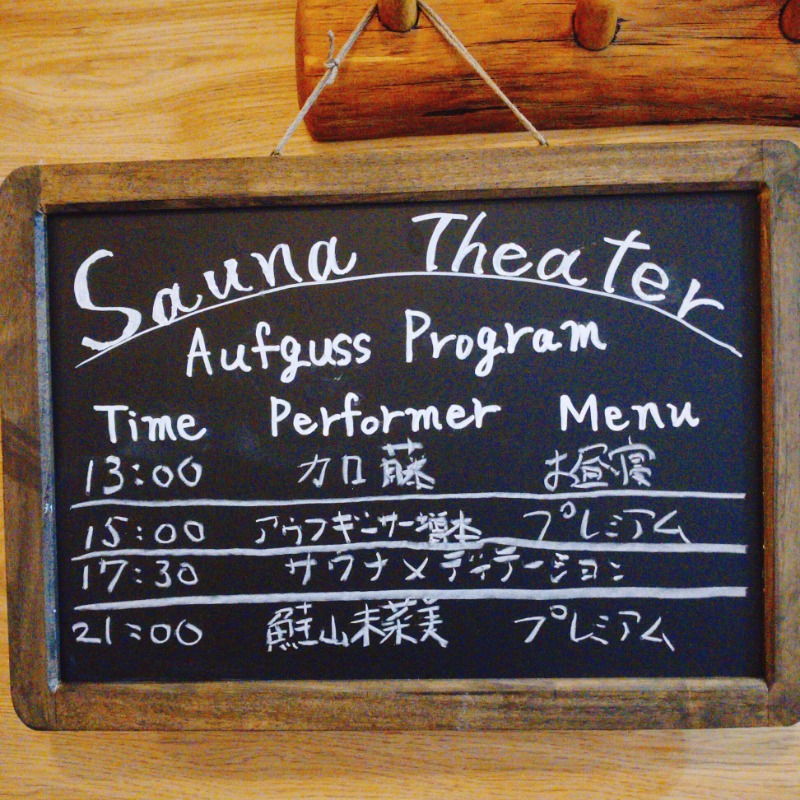 Sauna Theater
Aufguss Program
Time Performer Menu
13:00 加藤 お昼寝
15:00 アウフギーサー増本 プレミアム
17:30 サウナメディテーション
21:00 鮭山未菜美 プレミアム